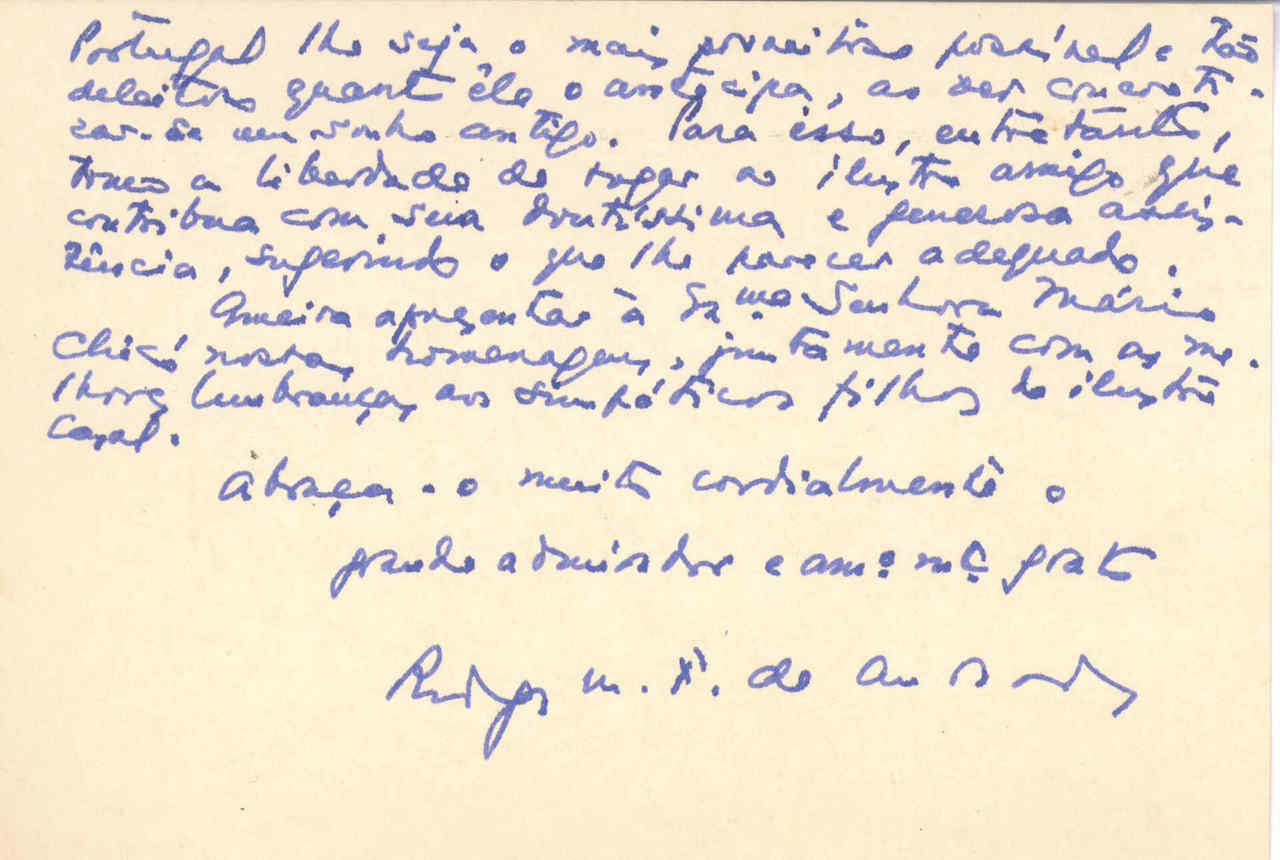 Portugal lhe seja o mais proveitoso possível e tão
deleitoso quanto êle o antecipa, ao ver concreti-
zar-se um sonho antigo. Para isso, entretanto,
tomo a liberdade de rogar ao ilustre amigo que
contribua com sua doutíssima e generosa assis-
tência, sugerindo o que lhe parecer adequado.
Queira apresentar à Exma. Senhora Mário
Chicó nossas homenagens, juntamente com as me-
lhores lembranças aos simpáticos filhos do ilustre
casal.
Abraça-o muito cordialmente o
grande admirador e amº. mtº. grato
Rodrigo M. F. de Andrade